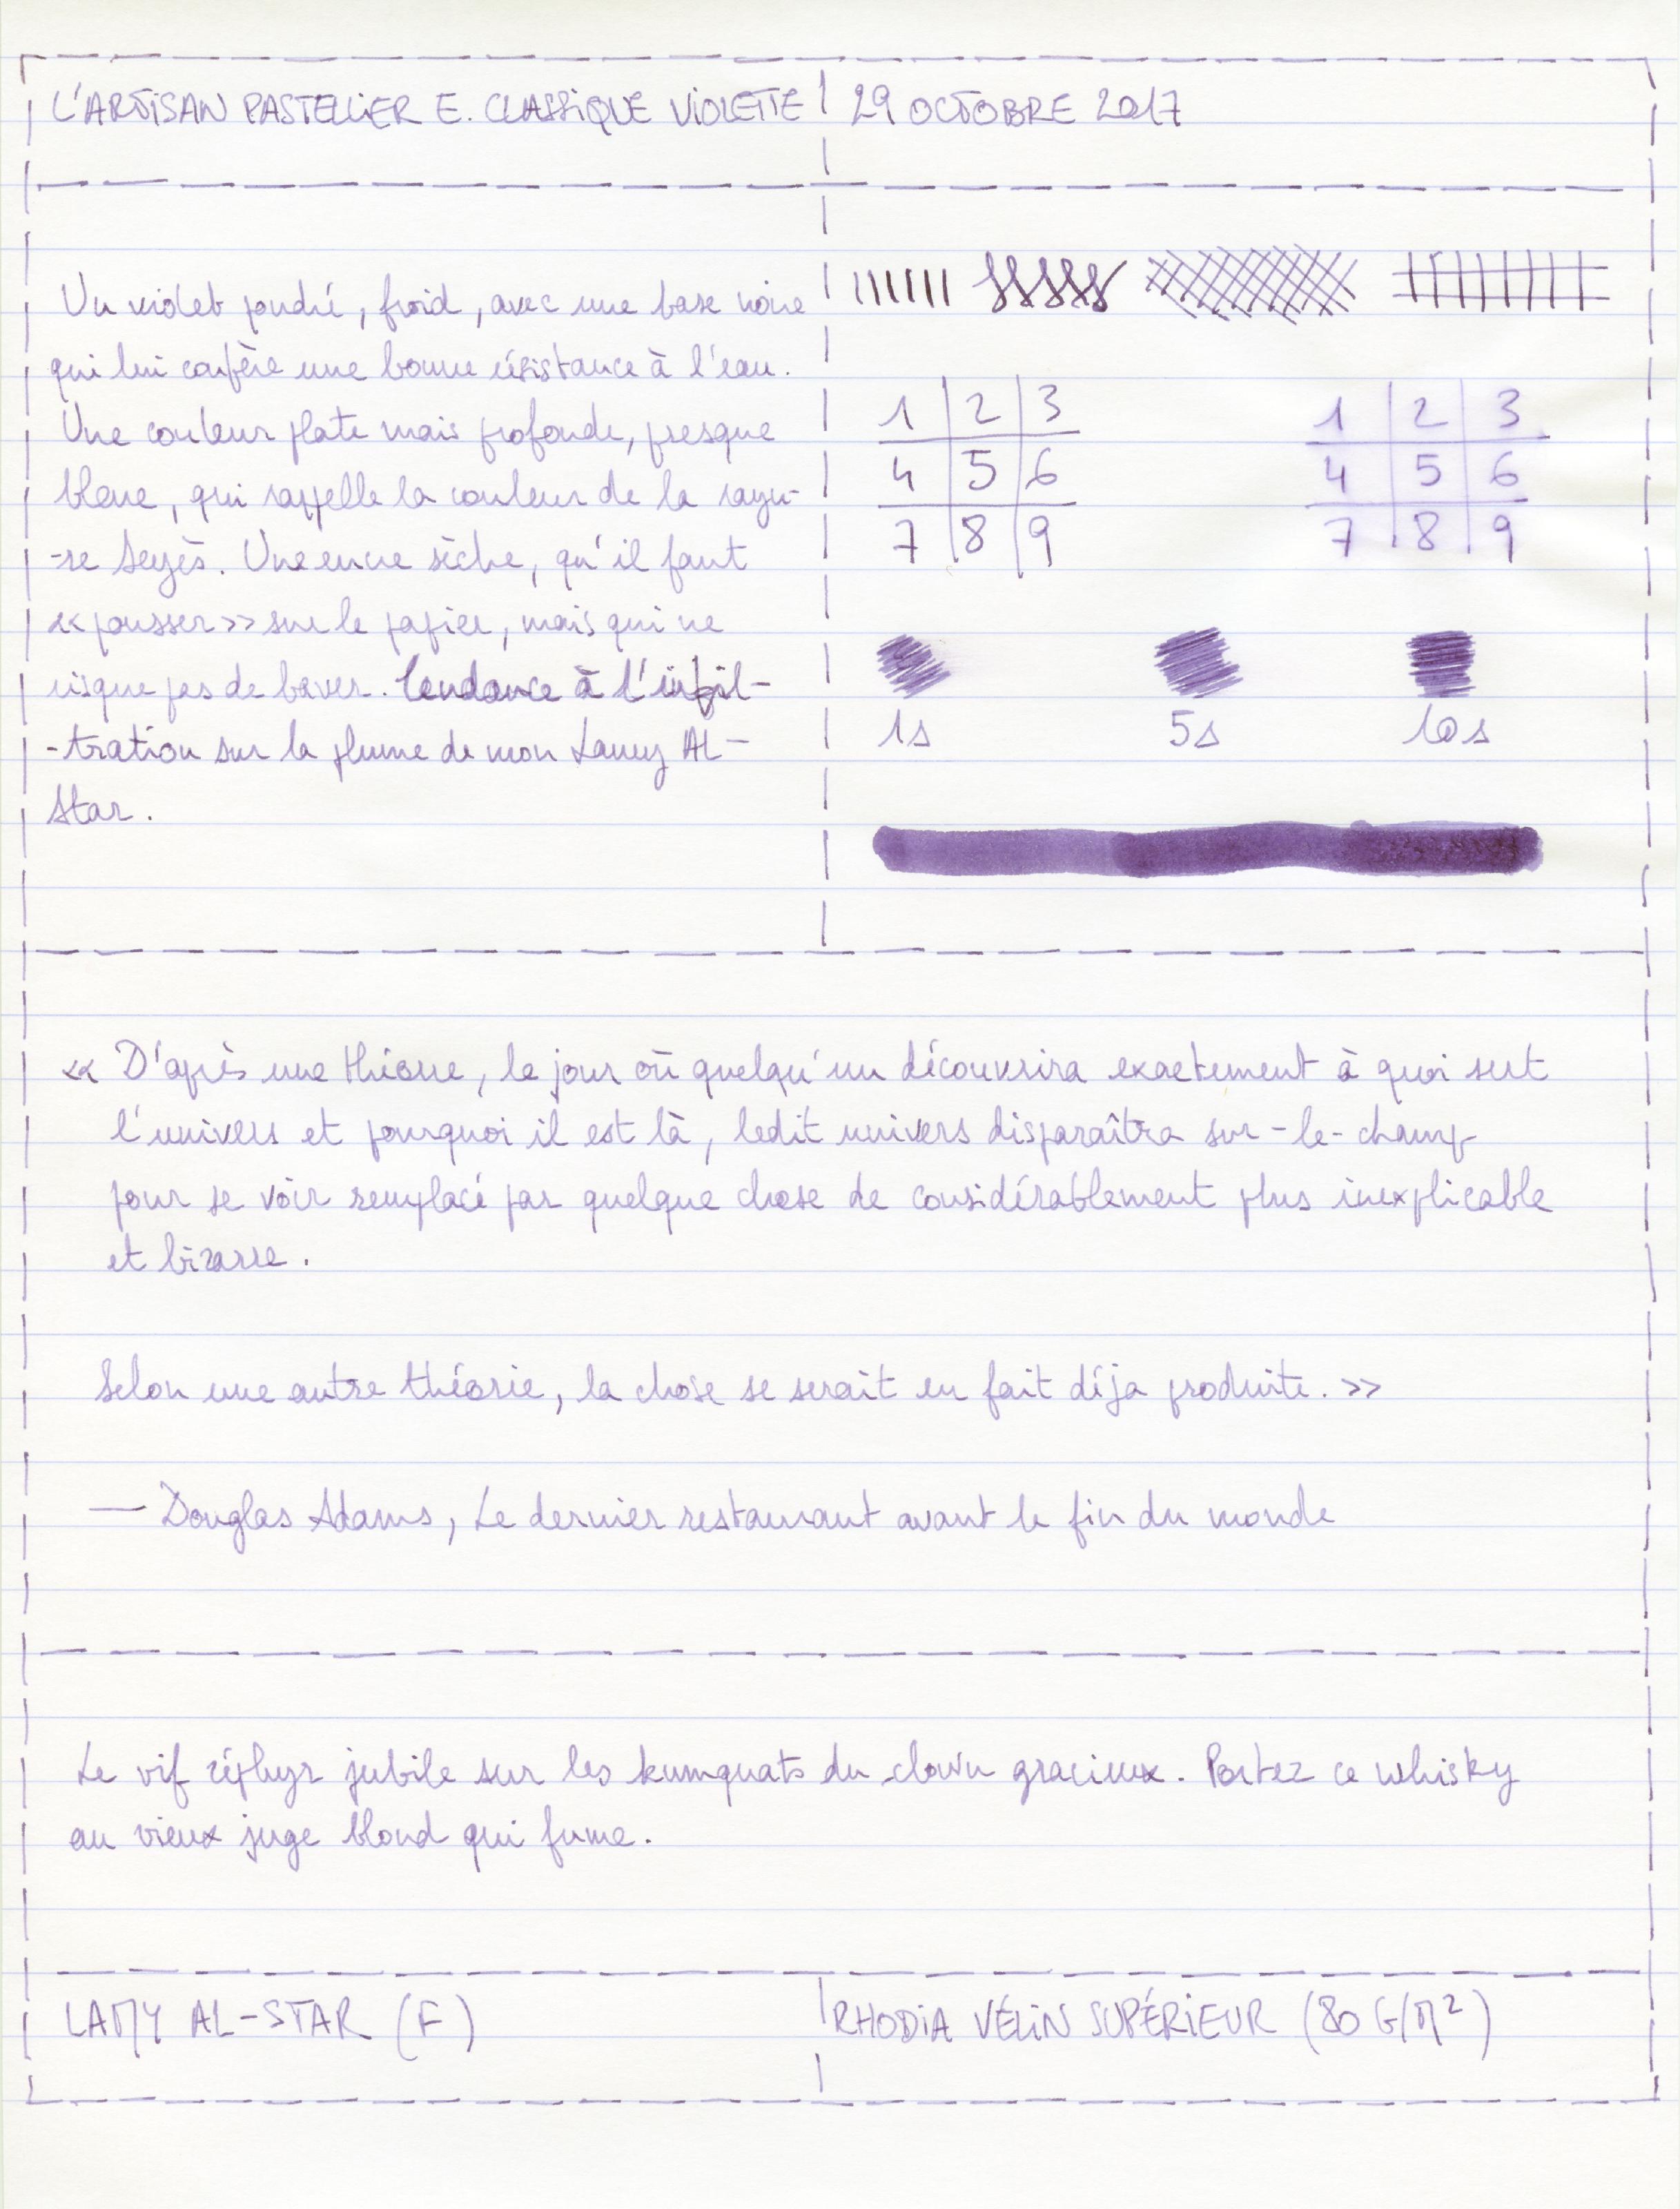 L'ARTISAN PASTELLIER E. CLASSIQUE VIOLETTE
29 OCTOBRE 2017
Un violet poudré, froid, avec une base noire
qui lui confère une bonne résistance à l'eau.
Une couleur plate mais profonde, presque
bleue, qui rappelle la couleur de la rayu-
-re Seyès. Une encre sèche, qu'il faut
« pousser » sur le papier, mais qui ne
risque pas de baver. Tendance à l'infil-
-tration sur la plume de mon Lamy AL-
Star.
1 2 3
4 5 6
7 8 9
1 2 3
4 5 6
7 8 9
1s 5s 10s
« D'après une théorie, le jour où quelqu'un découvrira exactement à quoi sert
l'univers et pourquoi il est là, ledit univers disparaîtra sur-le-champ
pour se voir remplacé par quelque chose de considérablement plus inexplicable
et bizarre.
Selon une autre théorie, la chose se serait en fait déja produite. »
— Douglas Adams, Le dernier restaurant avant la fin du monde
Le vif zéphyr jubile sur les kumquats du clown gracieux. Portez ce whisky
au vieux juge blond qui fume.
LAMY AL-STAR (F)
RHODIA VÉLIN SUPÉRIEUR (80 G/M²)